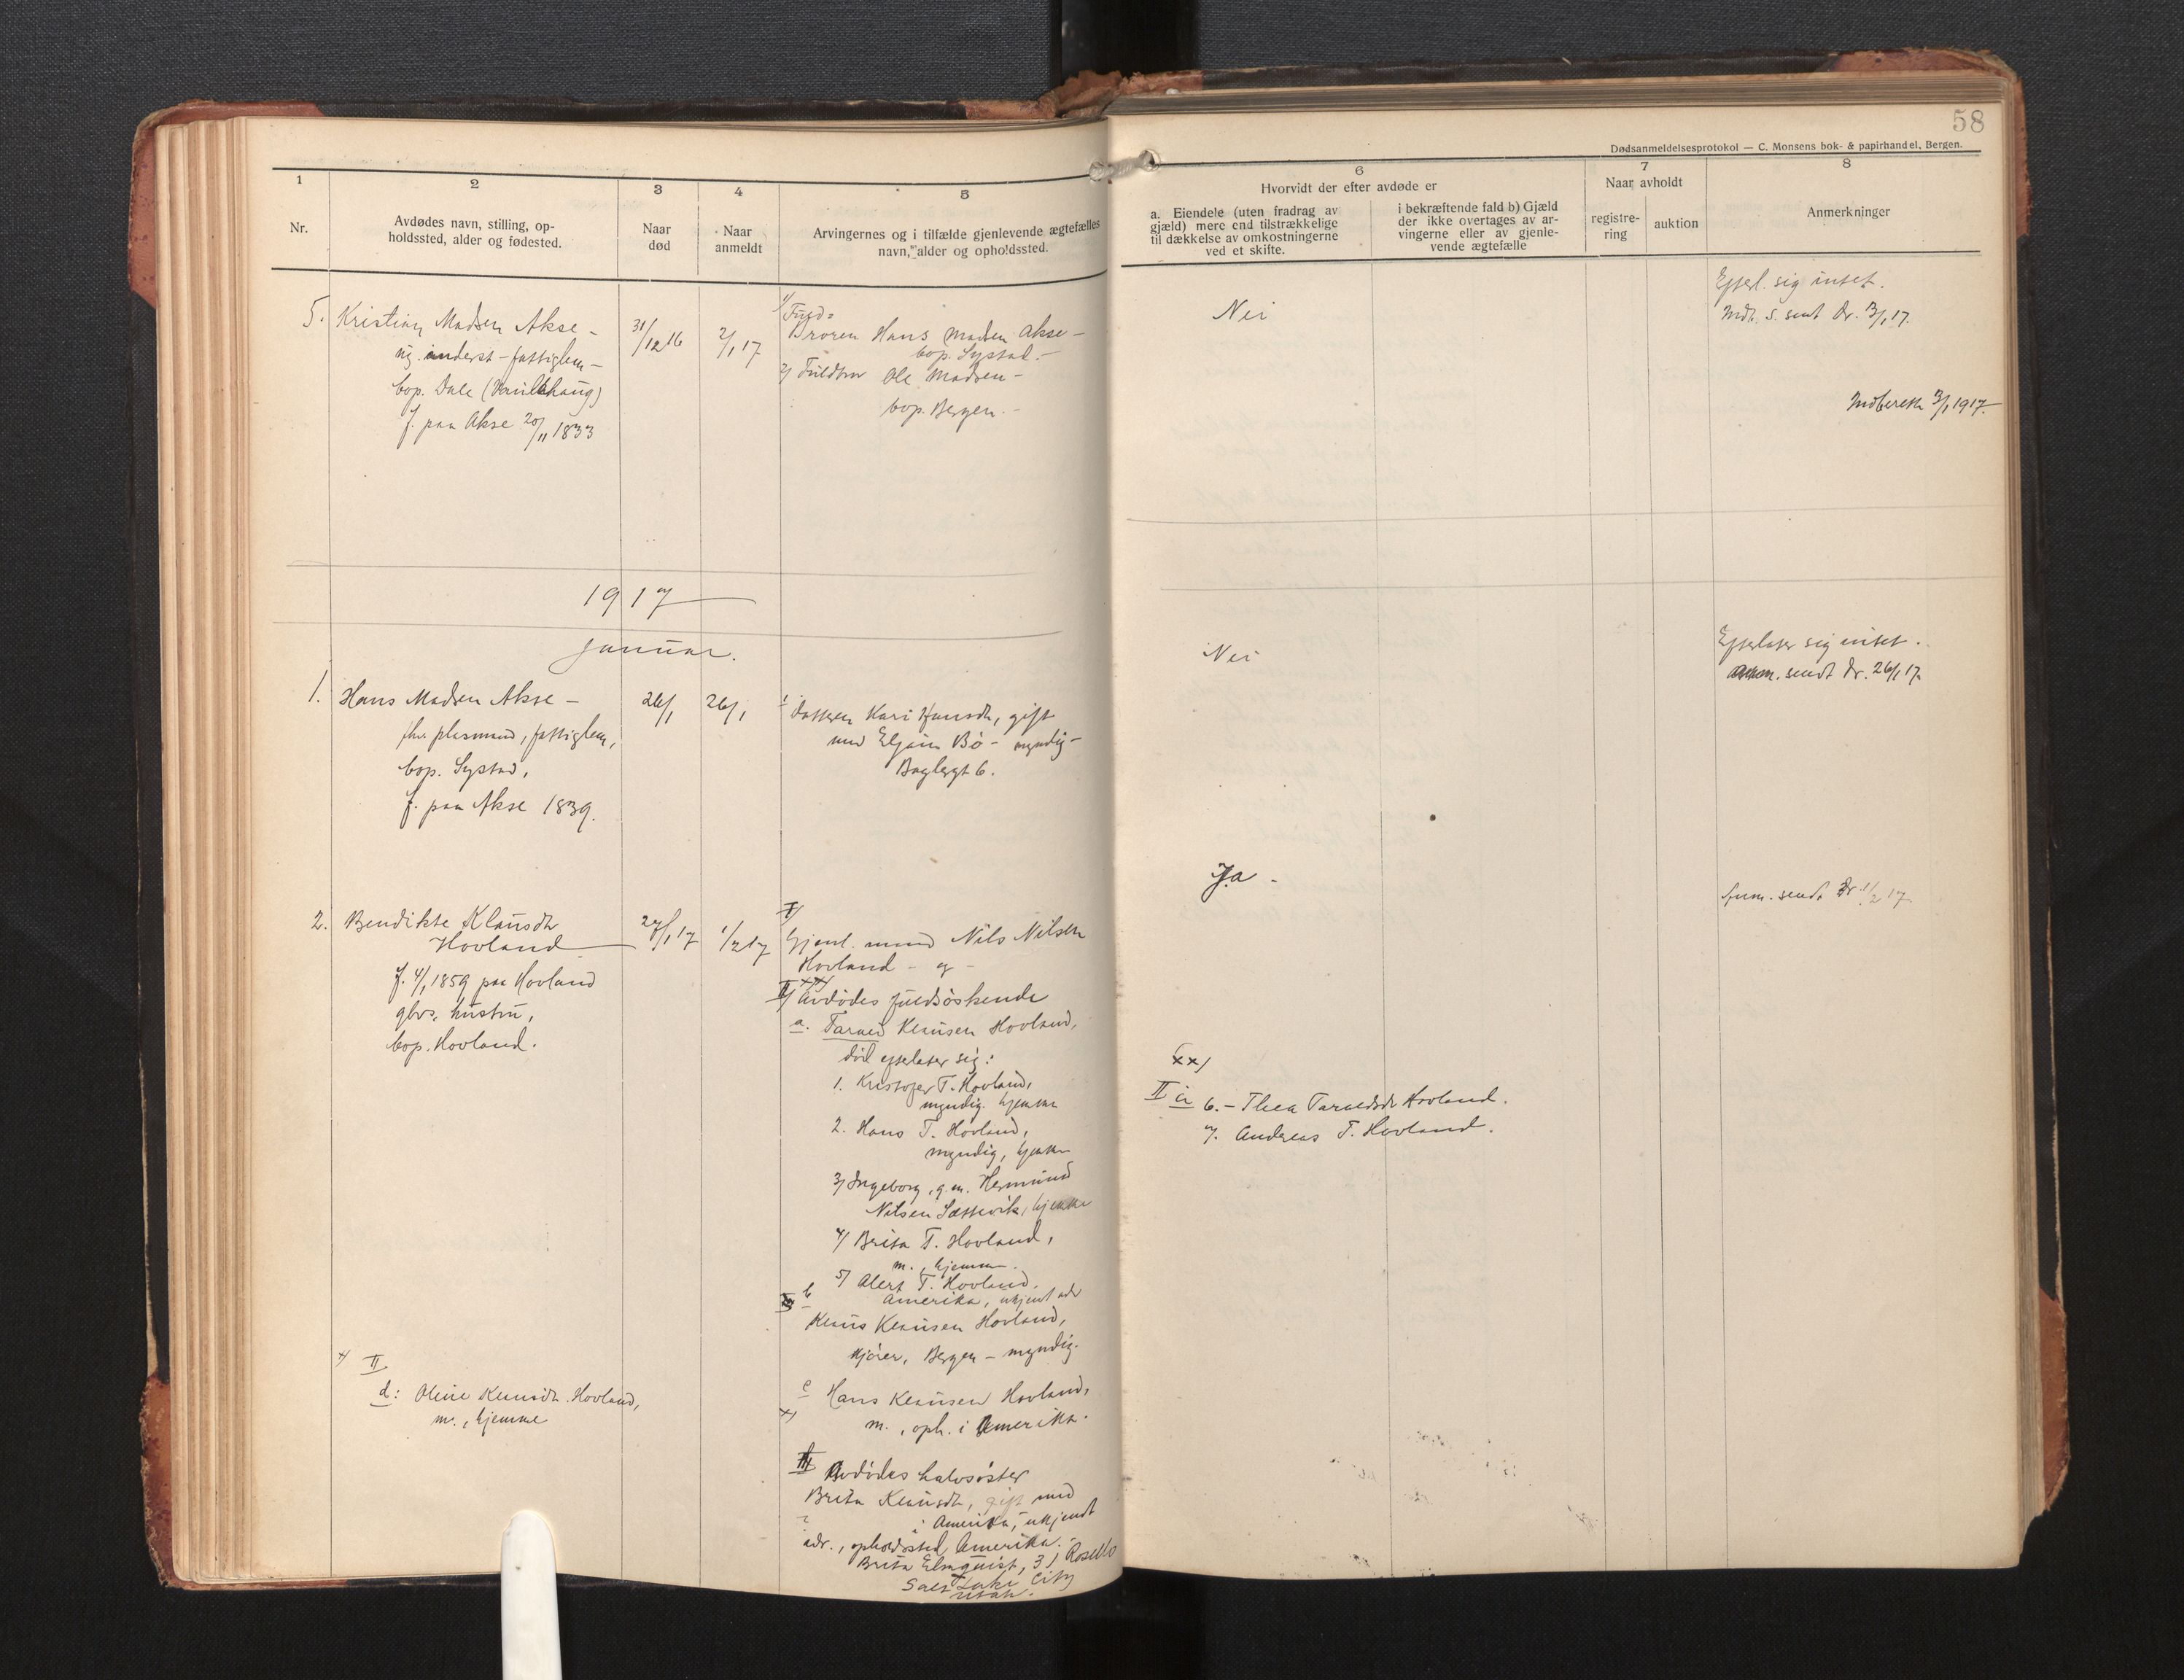 58
Dødsanmeldelsesprotokol — C. Monsens bok- & papirhandel, Bergen.
1
2
3
4
5
6
7
8
Nr.
Avdødes navn, stilling, op-
holdssted, alder og fødested.
Naar
død
Naar
anmeldt
Arvingernes og i tilfælde gjenlevende ægtefælles
navn, alder og opholdssted.
Hvorvidt der efter avdøde er
a. Eiendele (uten fradrag av
gjæld) mere end tilstrækkelige
til dækkelse av omkostningerne
ved et skifte.
i bekræftende fald b) Gjæld
der ikke overtages av ar-
vingerne eller av gjenle-
vende ægtefælle
Naar avholdt
registre-
ring
auktion
Anmerkninger
5. Kristian Madsen Akse –
ug. inderst – fattiglem –
bop. Dale
f. paa Akse 20/11 1833
31/12 16
2/1 17
1/
Broren Hans Madsen Akse –
bop. Systad. –
2/ Ole Madsen –
bop. Bergen. –
Nei
Efterl. sig intet.
s. sendt 3/1 17.
Indberetn 3/1 1917.
1917
Januar.
1. Hans Madsen Akse –
fhv. plasmand, fattiglem,
bop. Systad,
f. paa Akse 1839.
26/1
26/1
datteren Kari Hansdtr, gift
med Bø – myndig –
Nei
Efterlater sig intet.
sendt 26/1 17.
2. Bendikte Klausdtr
Hovland
f. 4/1 1859 paa Hovland
gbrs. hustru,
bop. Hovland.
27/1 17
1/2 17
I/
Gjenl. mand Nils Nilsen
Hovland – og –
xx/
II/ Avdødes fuldsøskende
a. Klausen Hovland,
død efterlater sig:
1. Kristofer T. Hovland,
myndig. hjemme
2. Hans T. Hovland,
myndig, hjemme
3/ Ingeborg, g. m. Hermund
Nilsen hjemme
4/ Brita T. Hovland,
m., hjemme
5/ Alert T. Hovland.
Amerika, ukjent adr
b
Klaus Klausen Hovland,
Bergen – myndig.
c Hans Klausen Hovland,
x/
m., oph. i Amerika.
III Avdødes halvsøster
Brita Klausdtr, gift med
? i Amerika, ukjendt
adr., opholdssted Amerika.
Brita Elmquist, 31
Salt Lake City
Utah.
x/ II
d: Oline Klausdtr. Hovland,
m., hjemme
Ja –
Anm. sendt 1/2 17.
xx/
II a 6. – Thea Hovland.
7. Andreas T. Hovland.